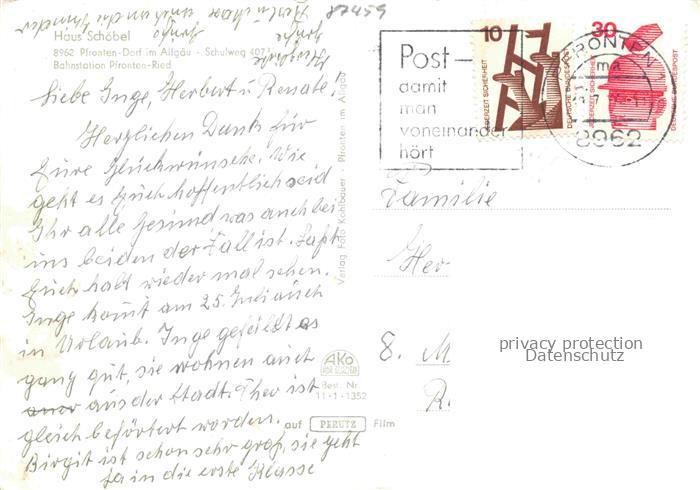 87459
Haus Schöbel
8962 Pfronten-Dorf im Allgäu · Schulweg 407
Bahnstation Pfronten-Ried
liebe Inge, Herbert u. Renate,
Herzlichen Dank für
Eure Glückwünsche. Wie
geht es Euch hoffentlich seid
Ihr alle gesund was auch bei
uns beiden der Fall ist. Laßt
Euch halt wieder mal sehen.
Inge kommt am 25. Juli auch
in Urlaub. Inge gefällt es
ganz gut, sie wohnen auch
aus der Stadt. Theo ist
gleich befördert worden.
Birgit ist schon sehr groß, sie geht
ja in die erste Klasse
Verlag Foto Kohlbauer · Pfronten im Allgäu
AKO
Best. Nr.
11-1-1352
auf PERUTZ Film
Post-
damit
man
voneinander
hört
10
JEDERZEIT SICHERHEIT
DEUTSCHE BUNDESPOST
30
JEDERZEIT SICHERHEIT
DEUTSCHE BUNDESPOST
PFRONTEN
8962
Familie
Her
8. M
R.
privacy protection
Datenschutz